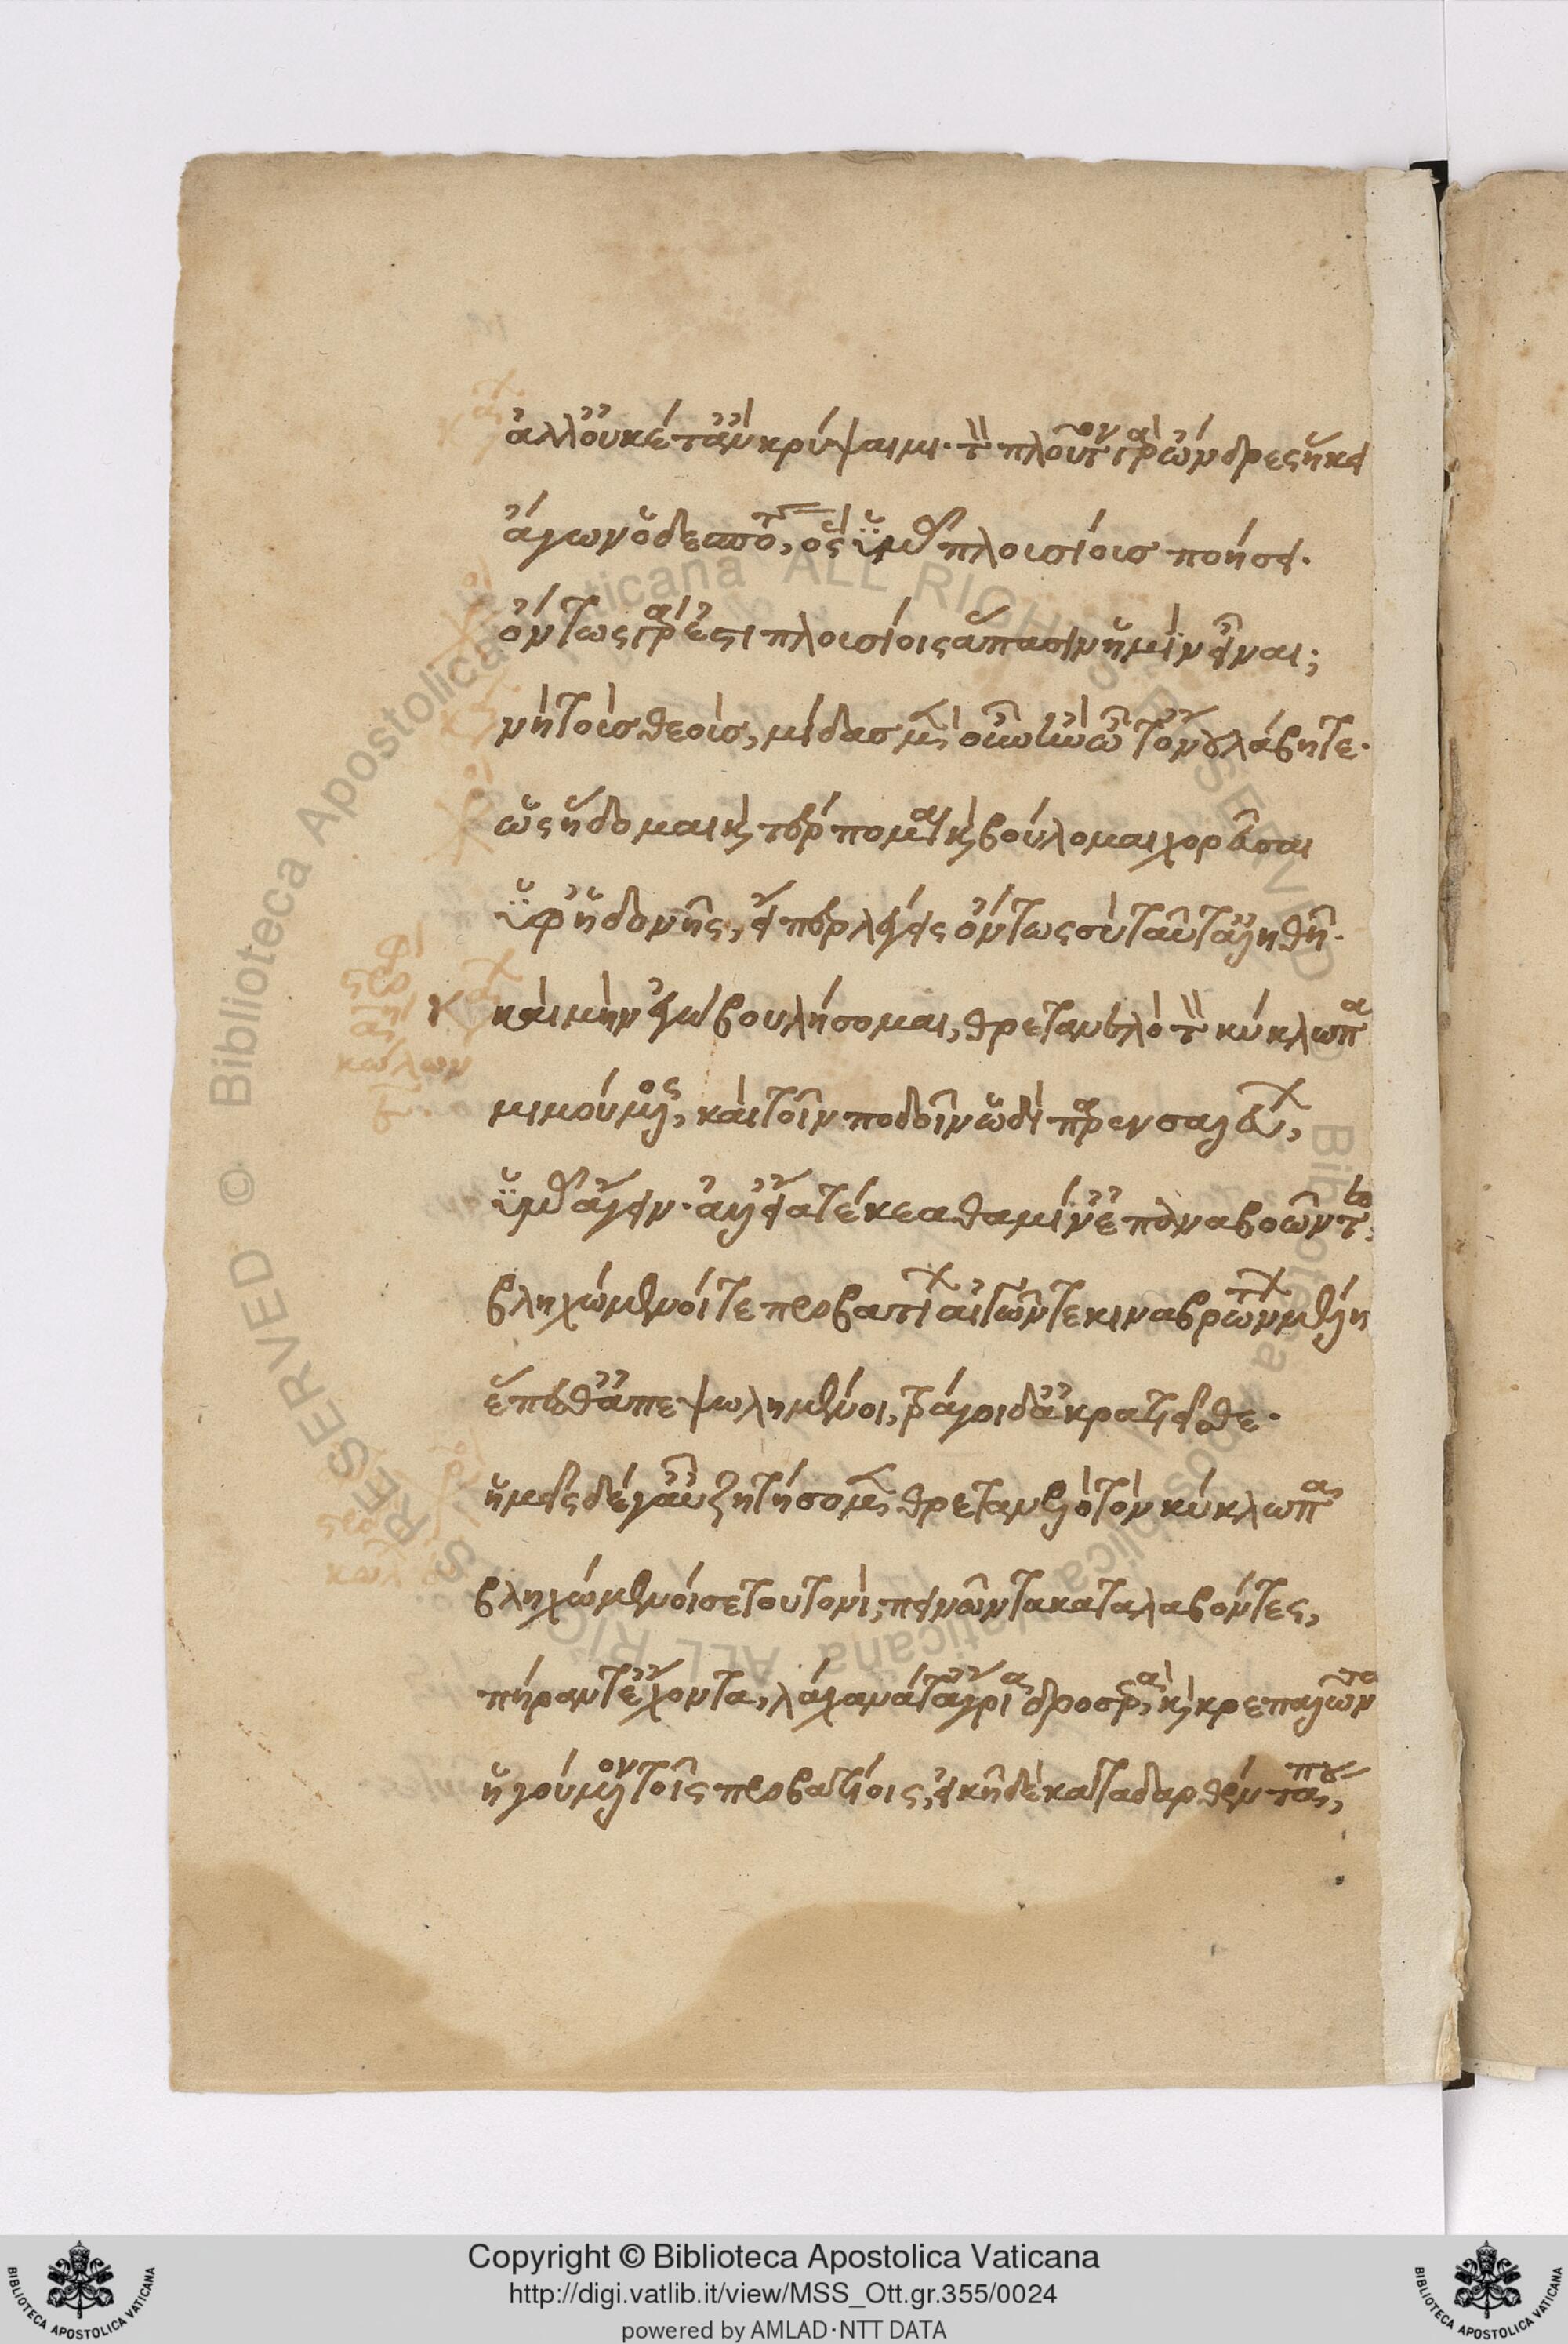 ἀλλ' οὐκέτ' ἂν κρύψαιμι· τὸν πλοῦτον γὰρ ὦνδρες ἥκει
ἄγων ὁ δεσπότης, ὃς ὑμᾶς πλουσίους ποιήσει.
ὄντως γὰρ ἔστι πλουσίοις ἅπασιν ἡμῖν εἶναι;
νὴ τοὺς θεοὺς, μίδας μὲν οὖν ἢν ὦτ' ὄνου λάβητε.
ὡς ἥδομαι καὶ τέρπομαι καὶ βούλομαι χορεῦσαι
ὑφ' ἡδονῆς, εἴπερ λέγεις ὄντως σὺ ταῦτ' ἀληθῆ.
κα καὶ μὴν ἐγὼ βουλήσομαι, θρετανελὸ τὸν κύκλωπα
μιμούμενος, καὶ τοῖν ποδοῖν ὡδὶ παρενσαλεύων,
ὑμᾶς ἄγειν· ἀλλ' εἶα τέκεα θαμίν' ἐπαναβοῶντες
βληχώμενοί τε προβατίων αἰγῶν τε κιναβρώντων μέλη
ἕπεσθ' ἀπεψωλημένοι, τράγοι δ' ἀκρατιεῖσθε.
ἡμεῖς δέ γ' αὖ ζητήσομεν θρετανελὸ τὸν κύκλωπα
βληχώμενοί σε τουτονὶ, πεινῶντα καταλαβόντες,
πήραν τ' ἔχοντα, λάχανά τ' ἄγρια δροσερὰ, καὶ κρεπαλῶντα
ἡγούμενον τοῖς προβατίοις, εἰκῆ δὲ καταδαρθέντα που,
Copyright © Biblioteca Apostolica Vaticana
http://digi.vatlib.it/view/MSS_Ott.gr.355/0024
powered by AMLAD·NTT DATA